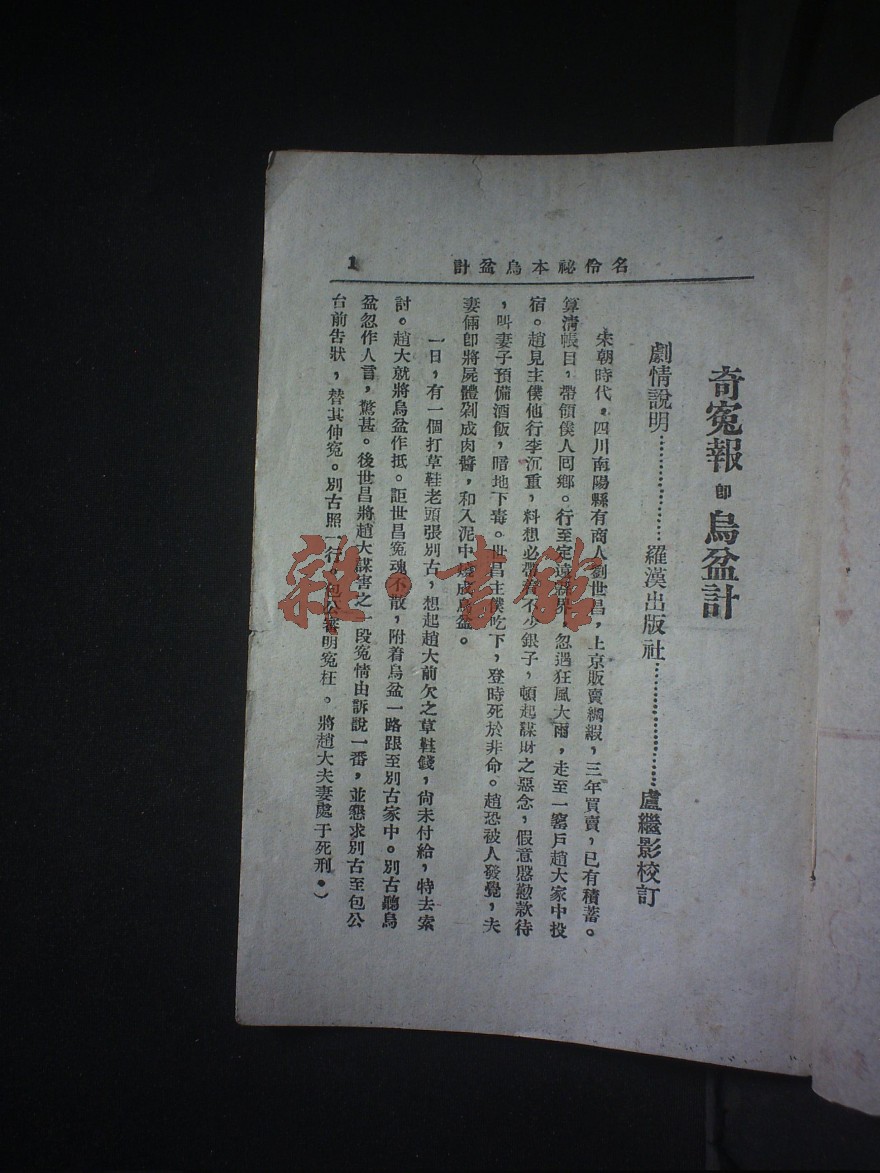 名伶祕本烏盆計
1
奇冤報 即 烏盆計
劇情說明……………羅漢出版社……………盧繼影校訂
宋朝時代，四川南陽縣有商人劉世昌，上京販賣綢緞，三年買賣，已有積蓄。
算清帳目，帶領僕人囘鄉。行至定遠縣界，忽遇狂風大雨，走至一窰戶趙大家中投
宿。趙見主僕他行李沉重，料想必帶着不少銀子，頓起謀財之惡念，假意慇懃款待
，叫妻子預備酒飯，暗地下毒。世昌主僕吃下，登時死於非命。趙恐被人發覺，夫
妻倆卽將屍體剁成肉醬，和入泥中燒成烏盆。
一日，有一個打草鞋老頭張別古，想起趙大前欠之草鞋錢，尙未付給，特去索
討。趙大就將烏盆作抵。詎世昌冤魂不散，附着烏盆一路跟至別古家中。別古聽烏
盆忽作人言，驚甚。後世昌將趙大謀害之一段冤情由訴說一番，並懇求別古至包公
台前告狀，替其伸冤。別古照一行。包公審明冤枉。將趙大夫妻處于死刑。）
雜·書館